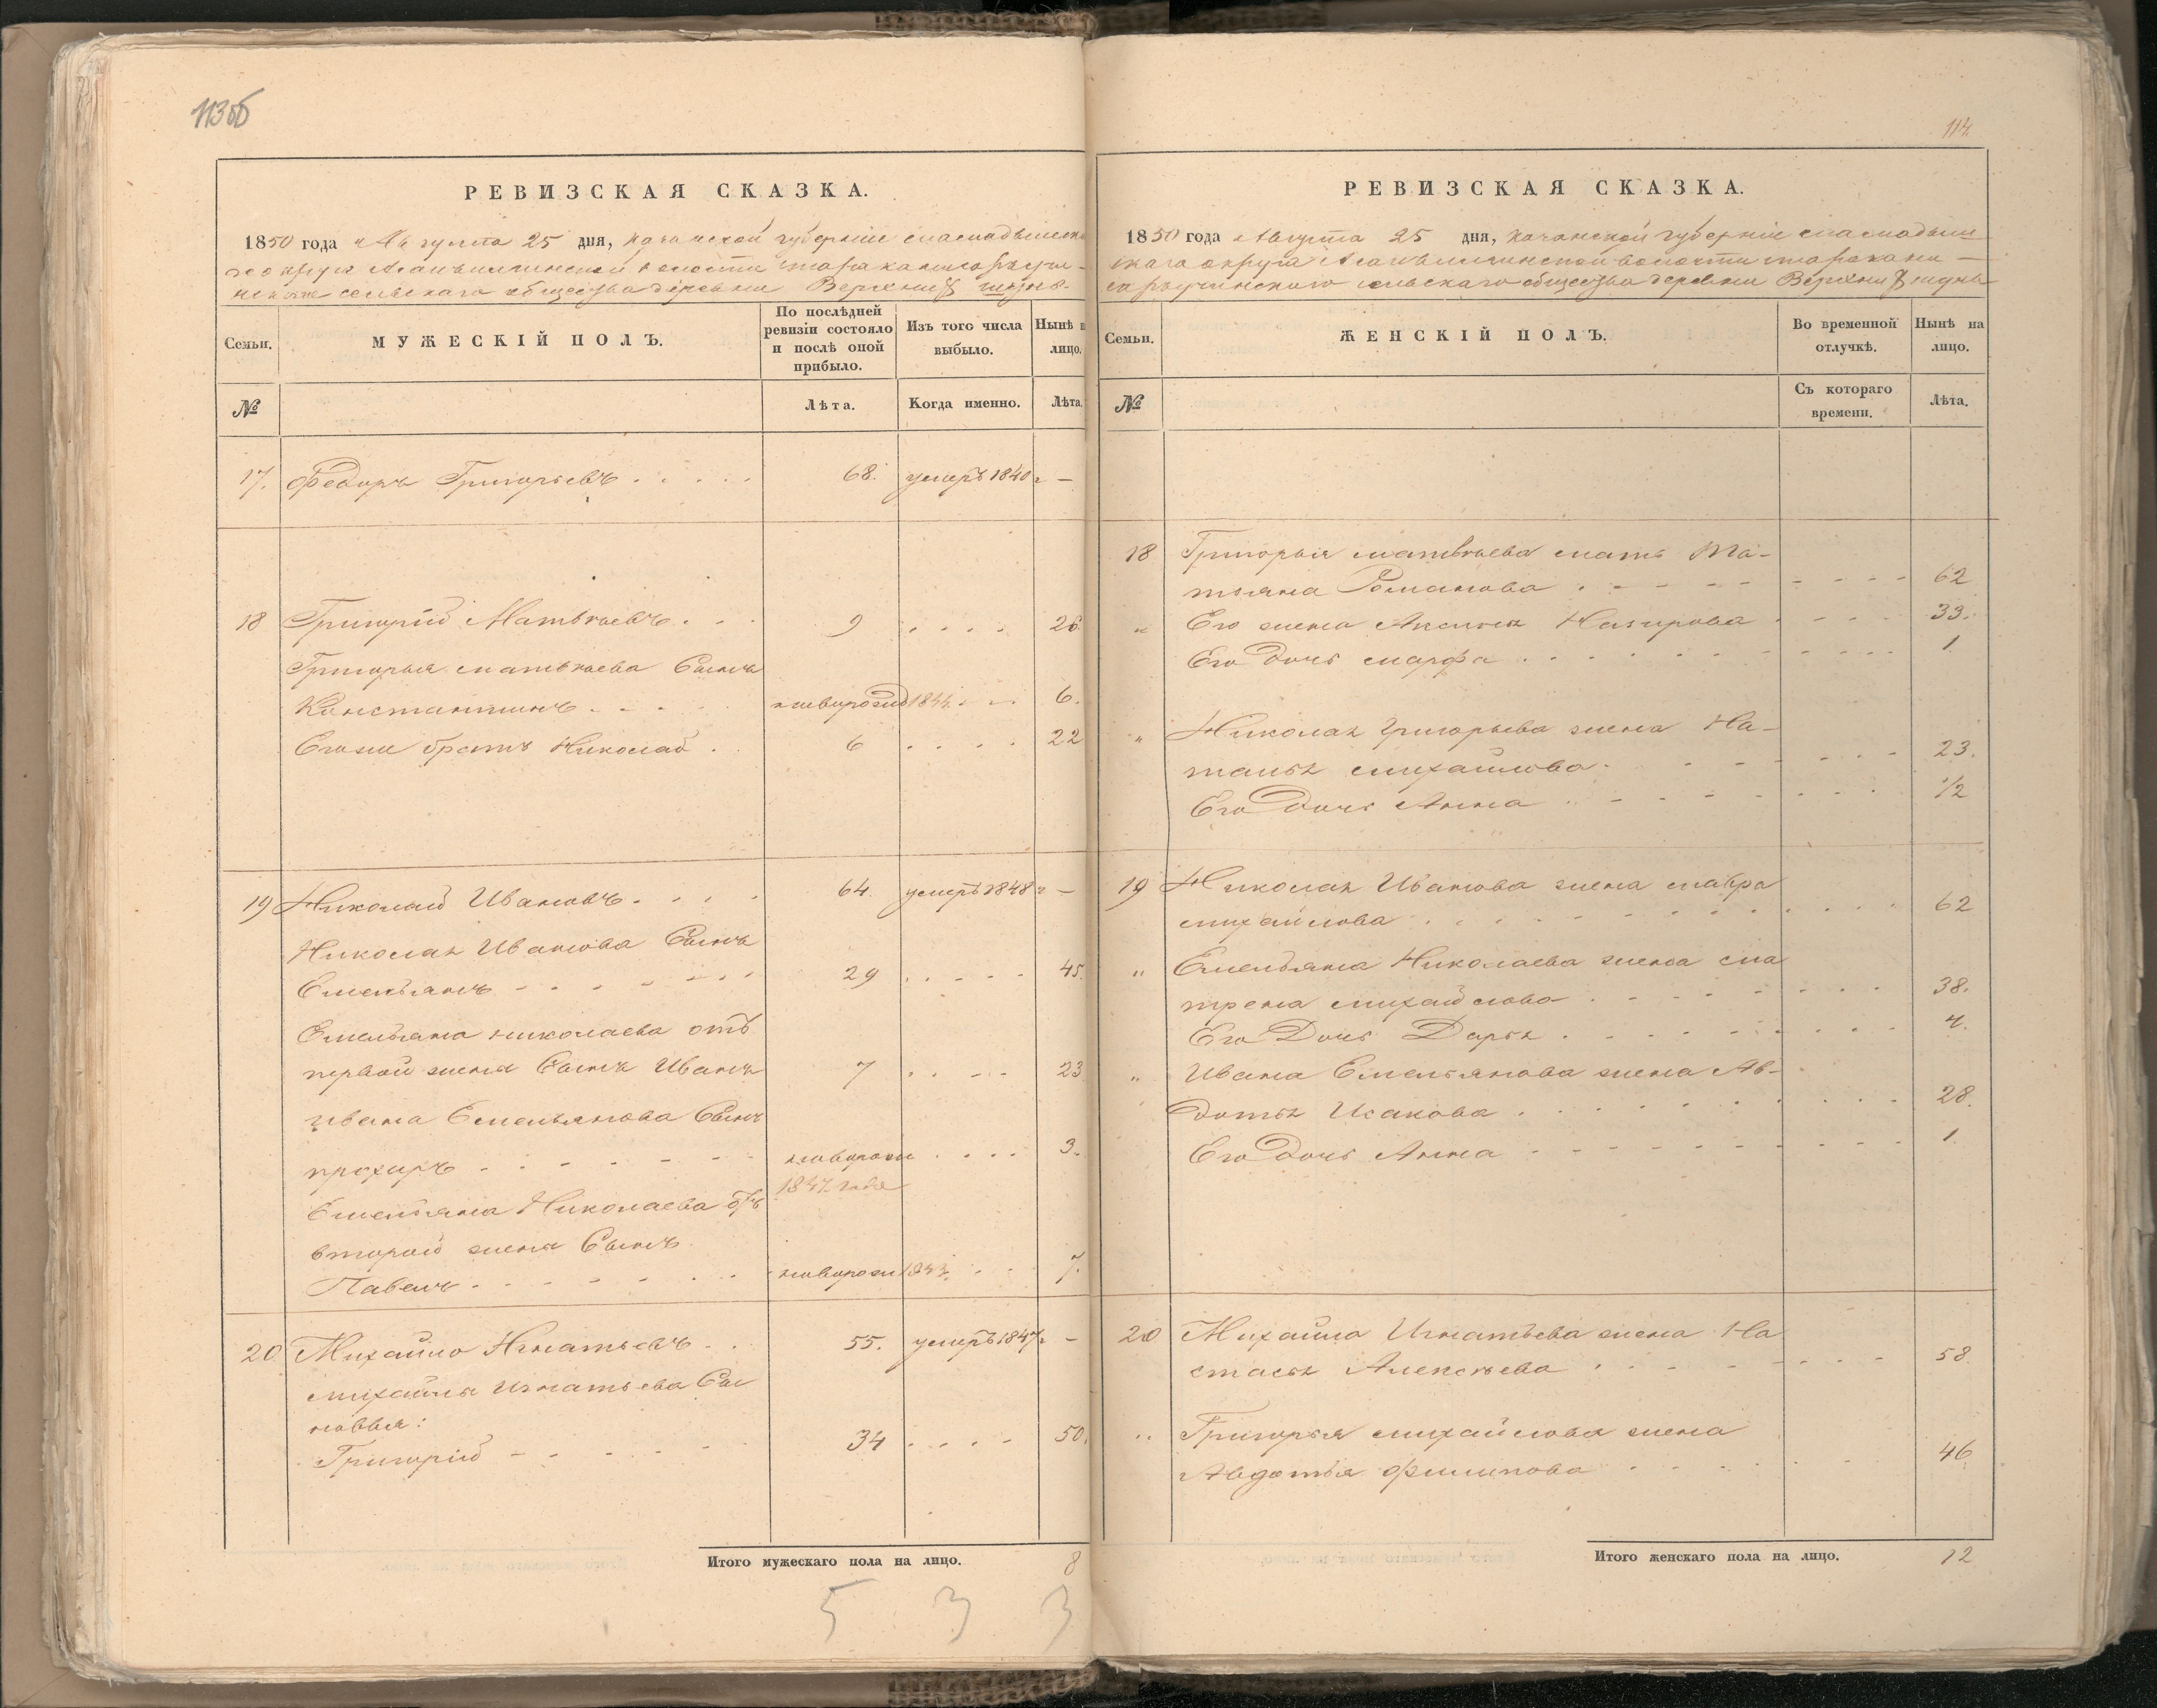 113об
РЕВИЗСКАЯ СКАЗКА.
1850 года Августа 25 дня, Казанской губерніи
сельскаго общества деревни Верхних
Семьи.
МУЖЕСКІЙ ПОЛЪ.
По послѣдней ревизіи состояло и послѣ оной прибыло.
Изъ того числа выбыло.
Нынѣ на лицо.
№
Лѣта.
Когда именно.
Лѣта.
17. Федоръ Григорьевъ 68. умеръ 1840 г —
18 Григорій Матвѣевъ 9 26.
Григорья Матвѣева Сынъ
Константинъ новорожд 1844 6.
Егоже братъ Николай 6 22
19 Николай Ивановъ 64. умеръ 1848 г —
Николая Иванова Сынъ
Емельянъ 29 45.
Емельяна Николаева отъ
первой жены Сынъ Иванъ 7 23
Ивана Емельянова Сынъ
прохоръ новорож 3.
1847 года
Емельяна Николаева отъ
второй жены Сынъ
Павелъ новорож 1843 7.
20 Михайло Игнатьевъ 55. умеръ 1847 г —
Михайлы Игнатьева Сы
новья:
Григорій 34 50.
Итого мужескаго пола на лицо. 8
5 3 3
114
РЕВИЗСКАЯ СКАЗКА.
1850 года Августа 25 дня, Казанской губерніи
скаго округа волости
сельскаго общества деревни Верхних
Семьи.
ЖЕНСКІЙ ПОЛЪ.
Во временной отлучкѣ.
Нынѣ на лицо.
№
Съ котораго времени.
Лѣта.
18 Григорья Матвѣева мать Та-
тьяна Романова 62
" Его жена Аксинья Назарова 33.
Его Дочь Марфа 1
" Николая Григорьева жена На-
талья Михайлова 23.
Его Дочь Анна 1/2
19 Николая Иванова жена Мавра
Михайлова 62
" Емельяна Николаева жена Ма
трена Михайлова 38.
Его Дочь Дарья 4.
" Ивана Емельянова жена Ав-
дотья Исакова 28.
Его Дочь Анна 1
20 Михайла Игнатьева жена На
стасья Алексѣева 58
" Григорья Михайлова жена
Авдотья Филипова 46.
Итого женскаго пола на лицо. 12